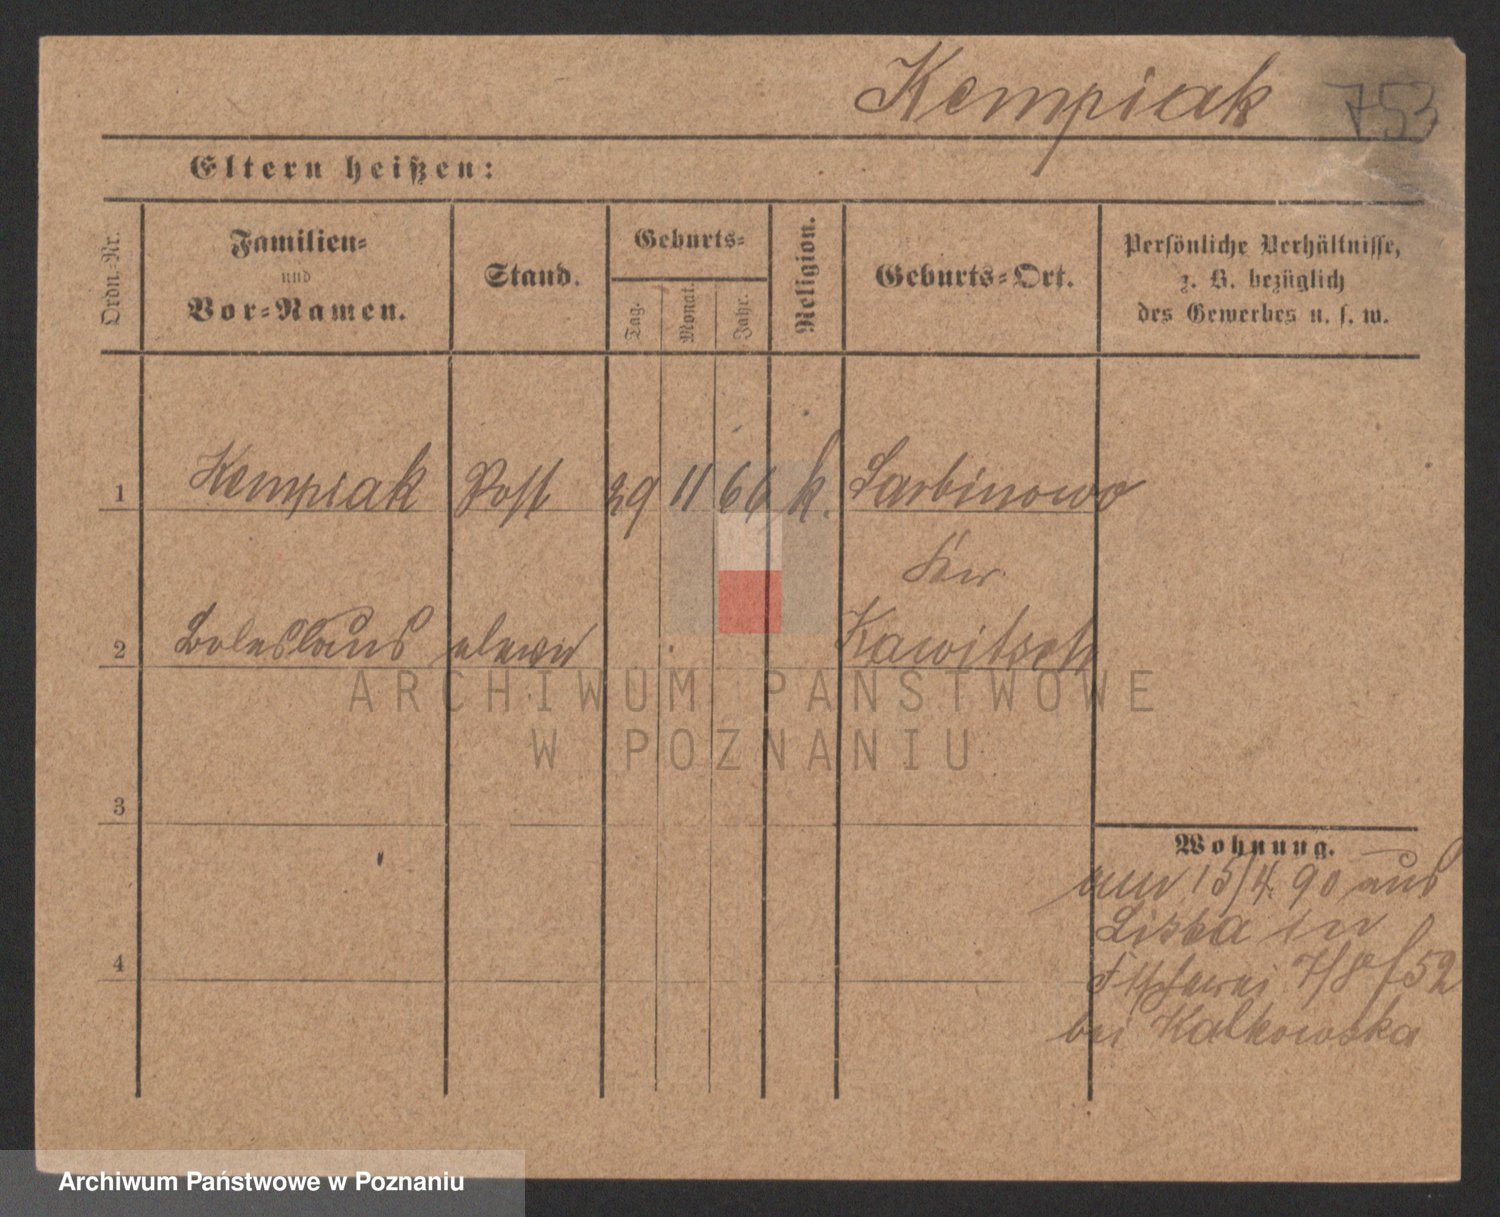 Kempiak 753
Eltern heißen:
Ordn.-Nr.
Familien-
und
Vor-Namen.
Stand.
Geburts-
Tag.
Monat.
Jahr.
Religion.
Geburts-Ort.
Persönliche Verhältnisse,
z. B. bezüglich
des Gewerbes u. s. w.
1 Kempiak Post 29 11 66 k. Sarbinowo
2 Boleslaus eleve
3
4
Wohnung.
15/4. 90 aus
Lissa in
7/8 52
bei Kalkowska
ARCHIWUM PAŃSTWOWE
W POZNANIU
Archiwum Państwowe w Poznaniu